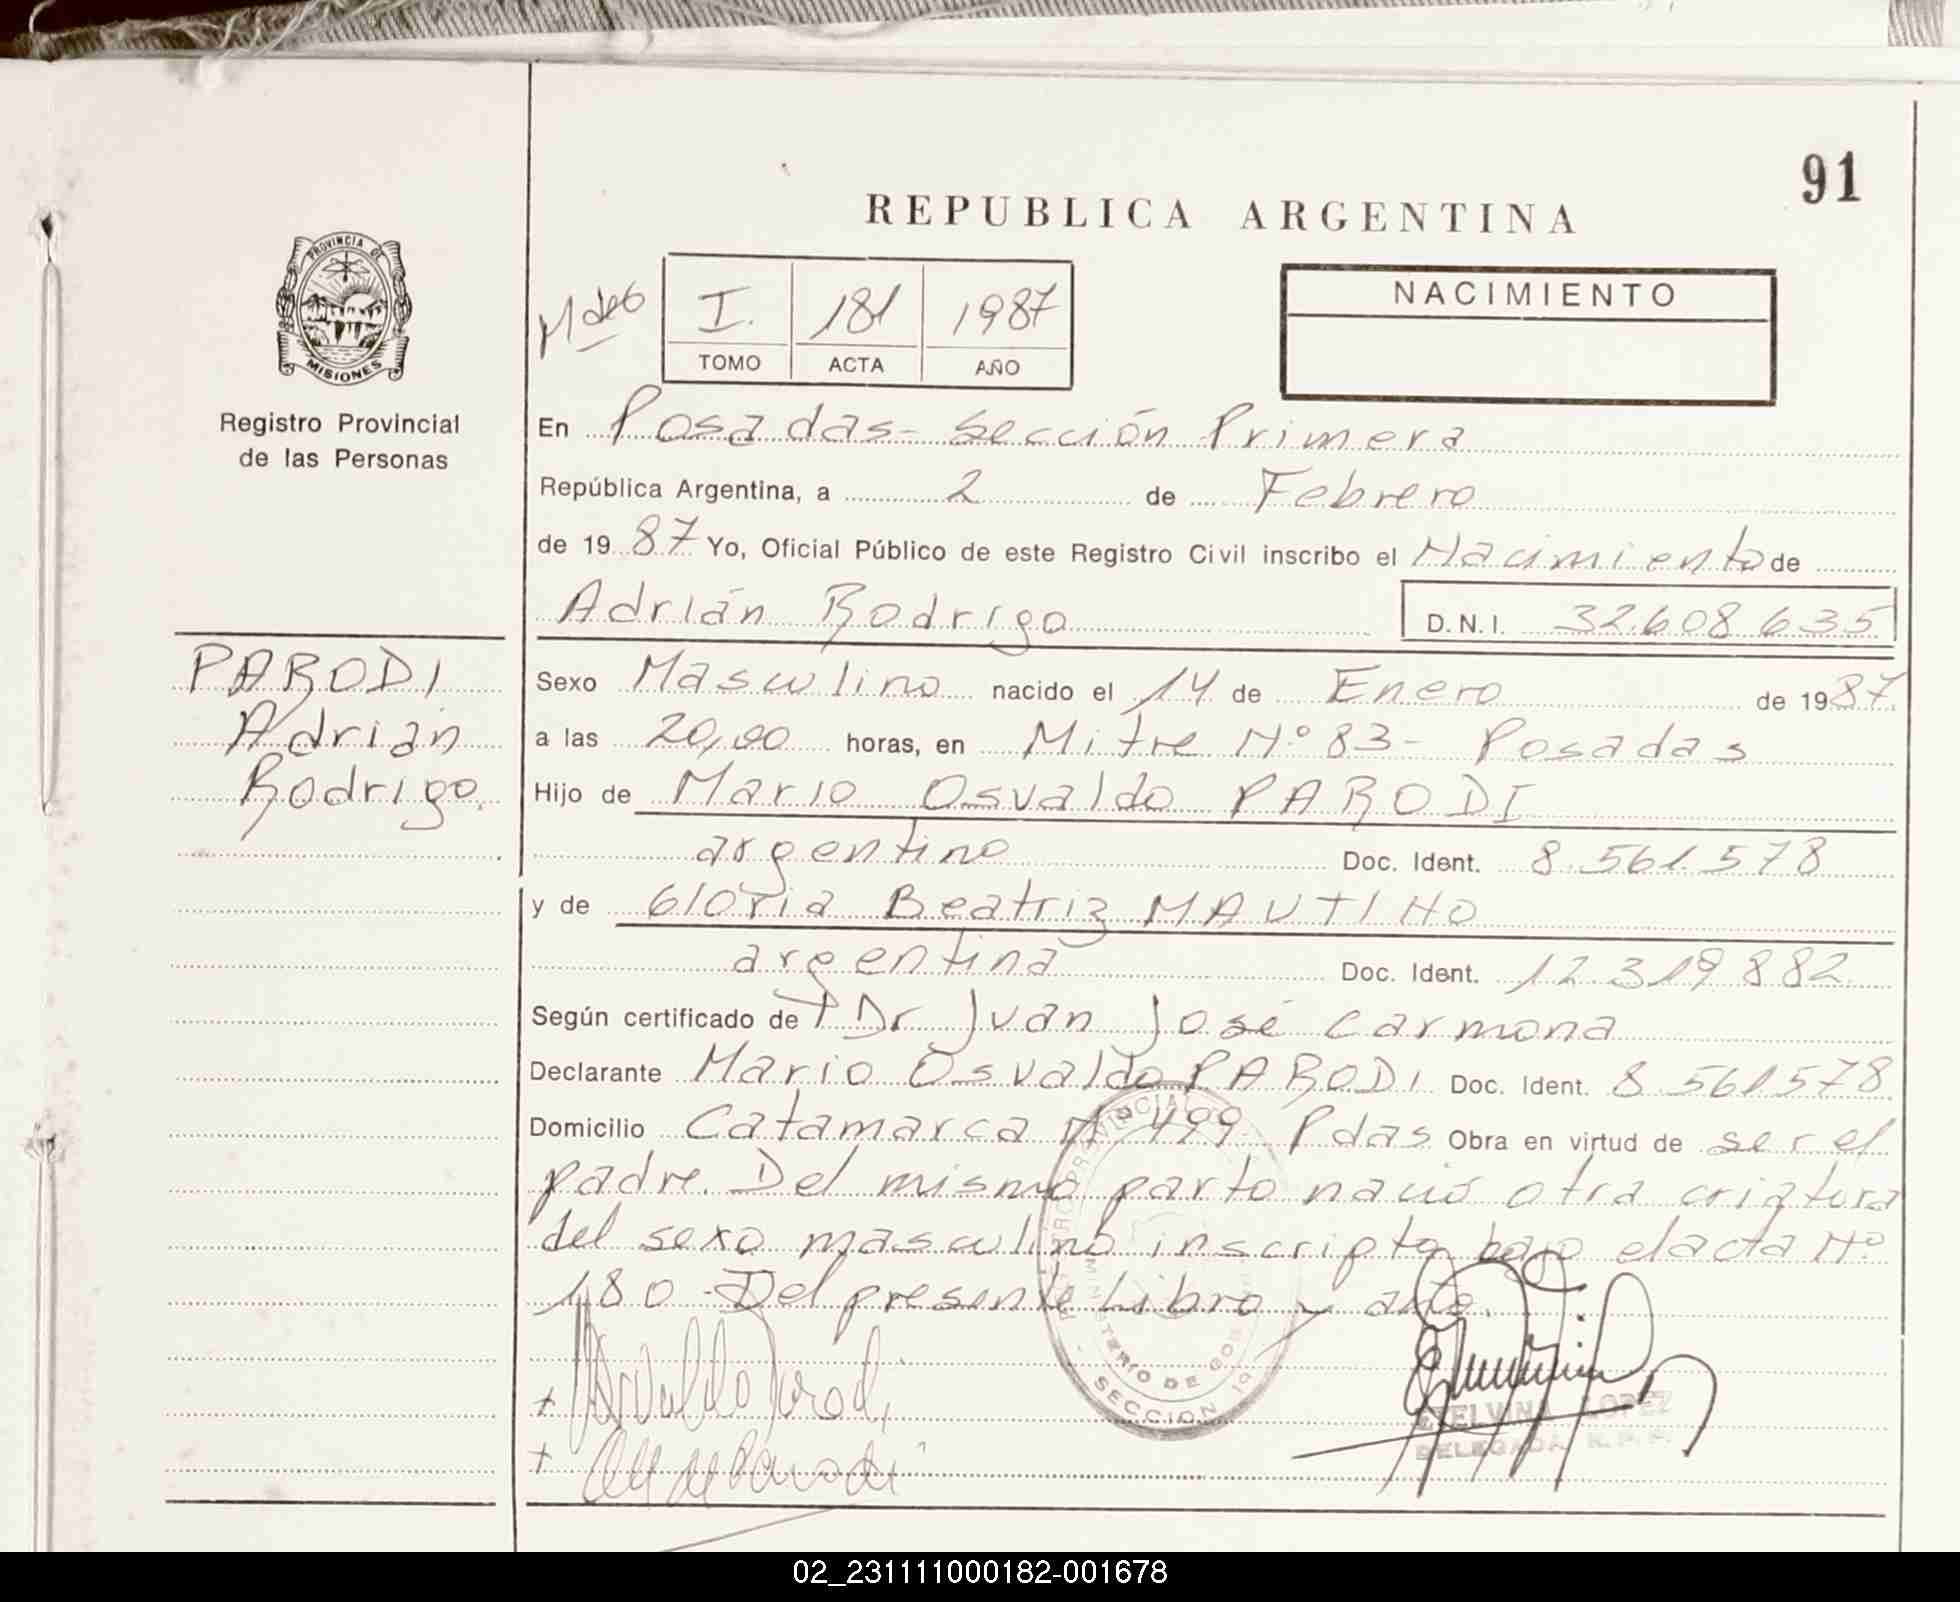 91
REPUBLICA ARGENTINA
PROVINCIA DE
MISIONES
Registro Provincial
de las Personas
I. 181 1987
TOMO ACTA AÑO
NACIMIENTO
En Posadas - Sección Primera
República Argentina, a 2 de Febrero
de 1987 Yo, Oficial Público de este Registro Civil inscribo el Nacimiento de
Adrián Rodrigo D.N.I. 32.608.635
PARODI
Adrián
Rodrigo.
Sexo Masculino nacido el 14 de Enero de 1987
a las 20,00 horas, en Mitre Nº 83 - Posadas
Hijo de Mario Osvaldo PARODI
argentino Doc. Ident. 8.561.578
y de Gloria Beatriz MAUTINO
argentina Doc. Ident. 12.319.882
Según certificado de Dr Juan José Carmona
Declarante Mario Osvaldo PARODI Doc. Ident. 8.561.578
Domicilio Catamarca Nº 499 Pdas Obra en virtud de ser el
padre. Del mismo parto nació otra criatura
del sexo masculino inscripta bajo el acta Nº
180 - Del presente Libro y año.
MINISTERIO DE GOB
SECCION 1ª
Osvaldo Parodi
ETELVINA LOPEZ
DELEGADA R.P.P.
02_231111000182-001678